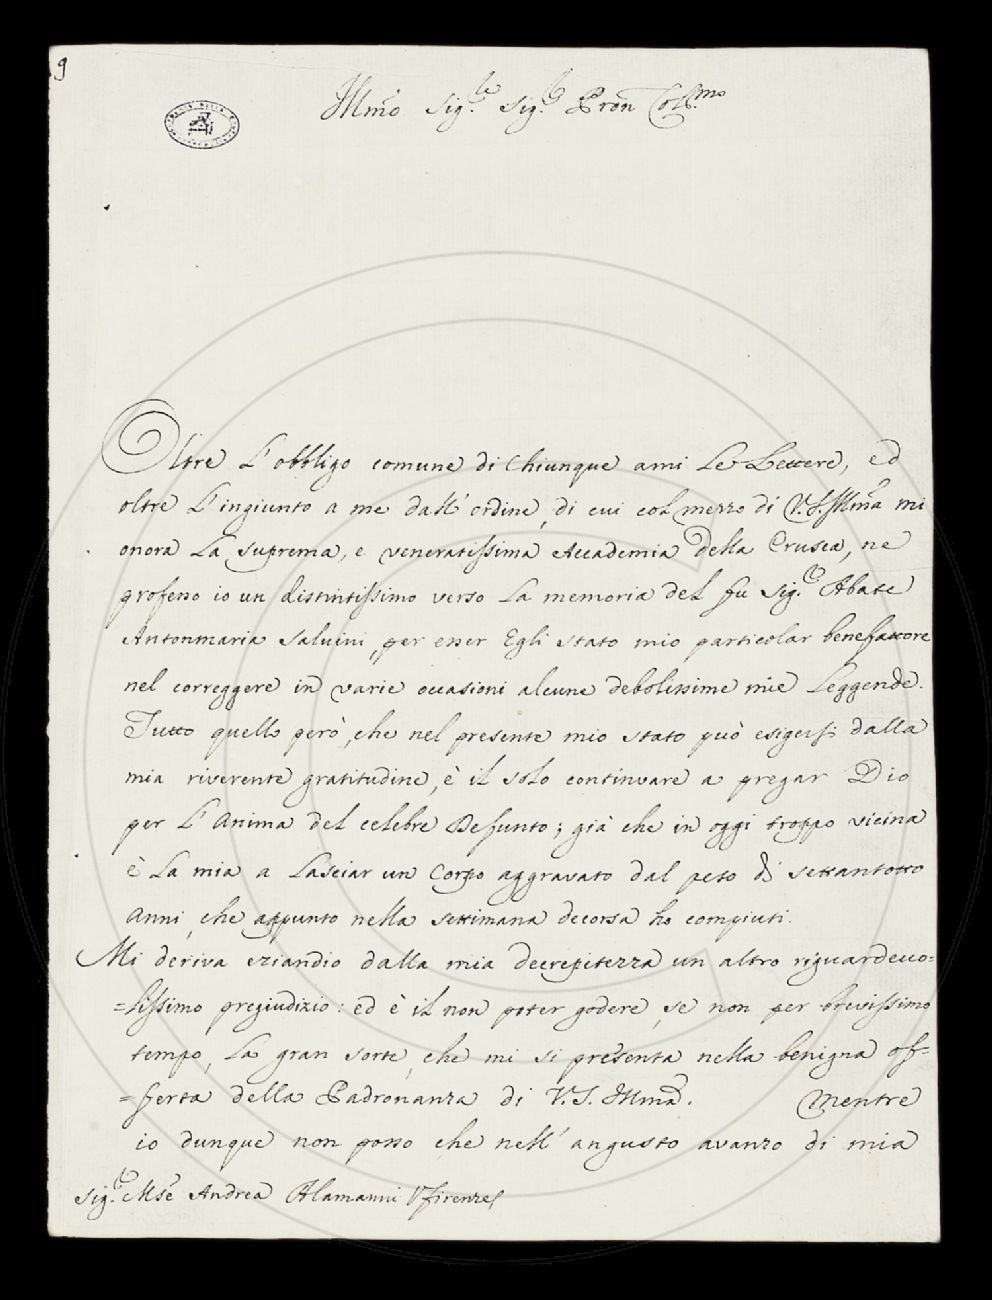 9
Illmo Sig.re Sig.r Pron Coll.mo
Oltre l'obbligo comune di chiunque ami le Lettere, ed
oltre l'ingiunto a me dall'ordine, di cui col mezzo di V.S. Illma mi
onora la suprema, e veneratissima Accademia della Crusca, ne
professo io un distintissimo verso la memoria del fu Sig.e Abate
Antonmaria Salvini, per esser Egli stato mio particolar benefattore
nel correggere in varie occasioni alcune debolissime mie Leggende.
Tutto quello però, che nel presente mio stato può esigersi dalla
mia riverente gratitudine, è il solo continuare a pregar Dio
per l'Anima del celebre Defunto; già che in oggi troppo vicina
è la mia a lasciar un Corpo aggravato dal peso di settantotto
anni, che appunto nella settimana decorsa ho compiuti.
Mi deriva eziandio dalla mia decrepitezza un altro riguardevo=
=lissimo pregiudizio: ed è il non poter godere, se non per brevissimo
tempo, la gran sorte, che mi si presenta nella benigna of=
=ferta della Padronanza di V.S. Illma. Mentre
io dunque non posso che nell'angusto avanzo di mia
Sig.e Mse Andrea Alamanni Firenze